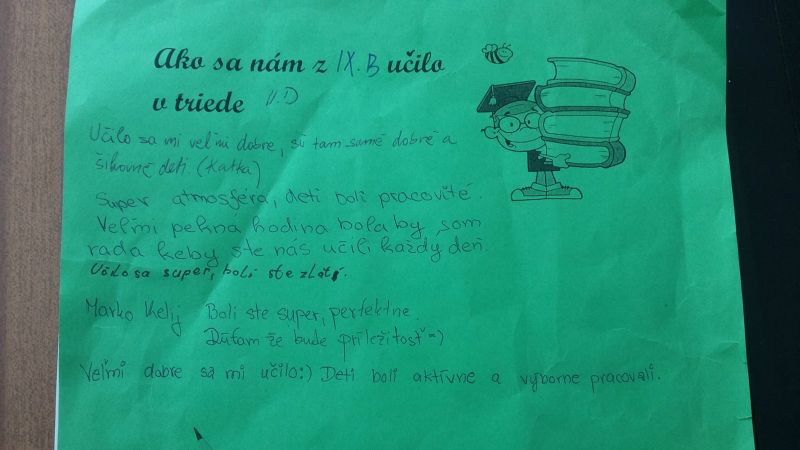 Ako sa nám z IX.B učilo
v triede V.D
Učilo sa mi veľmi dobre, sú tam samé dobré a
šikovné deti. (Katka)
Super atmosféra, deti boli pracovité.
Veľmi pekna hodina bola by som
rada keby ste nás učili každý deň.
Učilo sa super, boli ste zlatí.
Marko Kelij Boli ste super, perfektne.
Dúfam že bude príležitosť =)
Veľmi dobre sa mi učilo:) Deti boli aktívne a výborne pracovali.